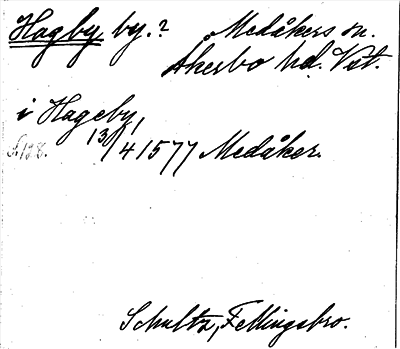 Hagby by.? Medåkers sn.
Åkerbo hd. Vstl.
i Hageby,
13/4 1577 Medåker.
S. 128.
Schultz, Fellingsbro.